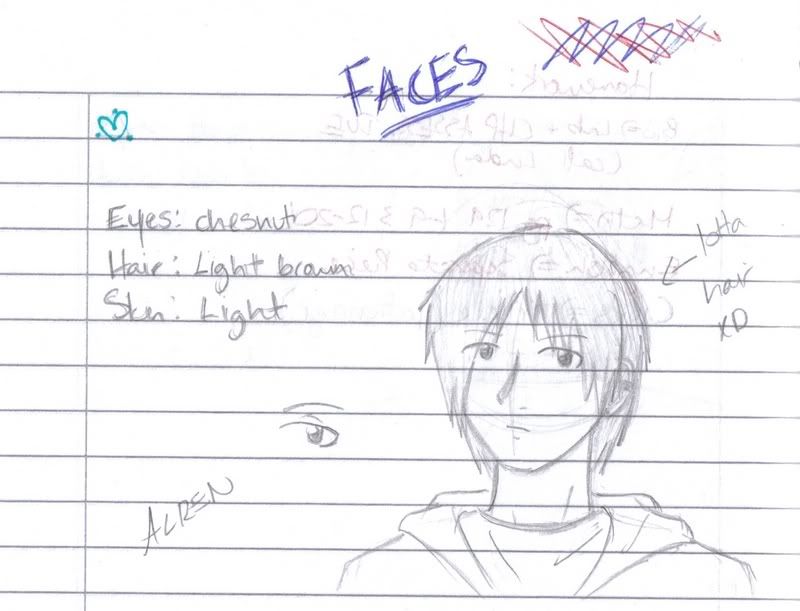 FACES
Eyes: chesnut
Hair: Light brown
Skin: Light
lotta
hair
xD
ALREN